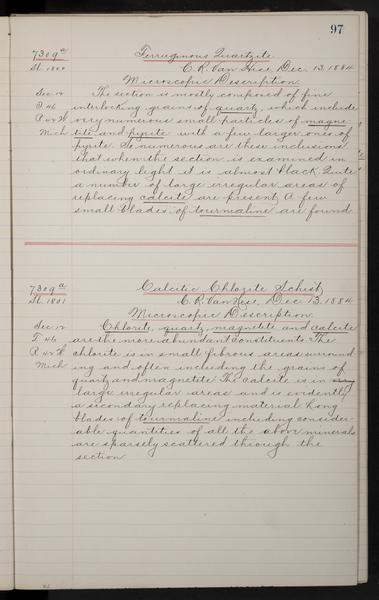 97
7309 a/ Ferruginous Quartzite
Sl. 1800 C. R. Van Hise, Dec. 13. 1884
Microscopic Description.
Sec 12 The section is mostly composed of fine
T. 46 interlocking grains of quartz, which include
R 42 W very numerous small particles of magne-
Mich tite and pyrite with a few larger ones of
pyrite. So numerous are these inclusions
that when the section is examined in
ordinary light it is almost black. Quite
a number of large irregular areas of
replacing calcite are present. A few
small blades of tourmaline are found.
7309 a Calcitic Chlorite Schist
Sl. 1801 C. R. Van Hise, Dec. 13. 1884
Microscopic Description.
Sec 12 Chlorite, quartz, magnetite and calcite
T. 46 are the more abundant constituents. The
R 42 W chlorite is in small fibrous areas surround
Mich ing and often including the grains of
quartz and magnetite. The calcite is in
large irregular areas and is evidently
a secondary replacing material. Long
blades of tourmaline including consider-
able quantities of all the above minerals
are sparsely scattered through the
section.